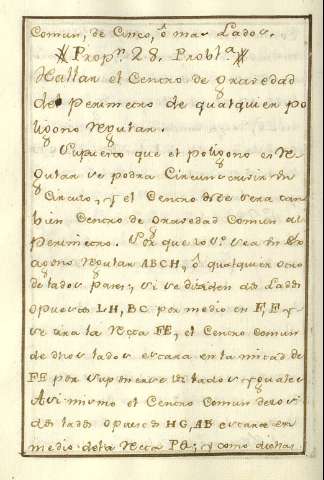 Comun, de Cinco, ô mas Lados.
Propn. 28. Probla.
Hallar el Centro de Gravedad
del perimetro de qualquier po
ligono Regular.
Supuerto que el poligono es Re
gular se podra Circunscrivir un
Circulo, y el Centro deste sera tan
bien Centro de Gravedad Comun al
perimetro. Por que lo 1º sea un Ex
agono Regular ABCH, ô qualquier otro
de lados pares, si se dividen dos Lados
opuestos LH, BC por medio en F, E y
se tira la Recta FE, el Centro Comun
de dhos lados estara en la mitad de
FE por suponerse los lados yguales
Asi mismo el Centro Comun de los
dos lados opuestos HG, AB estara en
medio de la Recta PQ; y como dichas